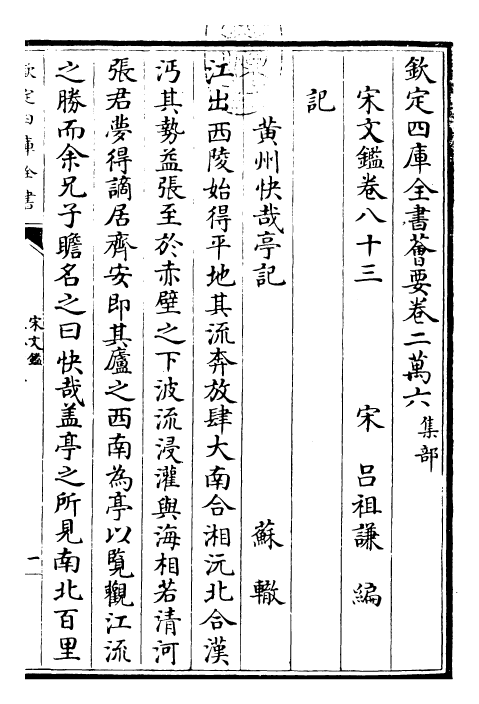 欽定四庫全書薈要卷二萬六 集部
宋文鑑卷八十三　宋　呂祖謙　編
記
黃州快哉亭記　蘇轍
江出西陵始得平地其流奔放肆大南合湘沅北合漢
沔其勢益張至於赤壁之下波流浸灌與海相若清河
張君夢得謫居齊安即其廬之西南為亭以覧觀江流
之勝而余兄子瞻名之曰快哉盖亭之所見南北百里
欽定四庫全書
宋文鑑
一